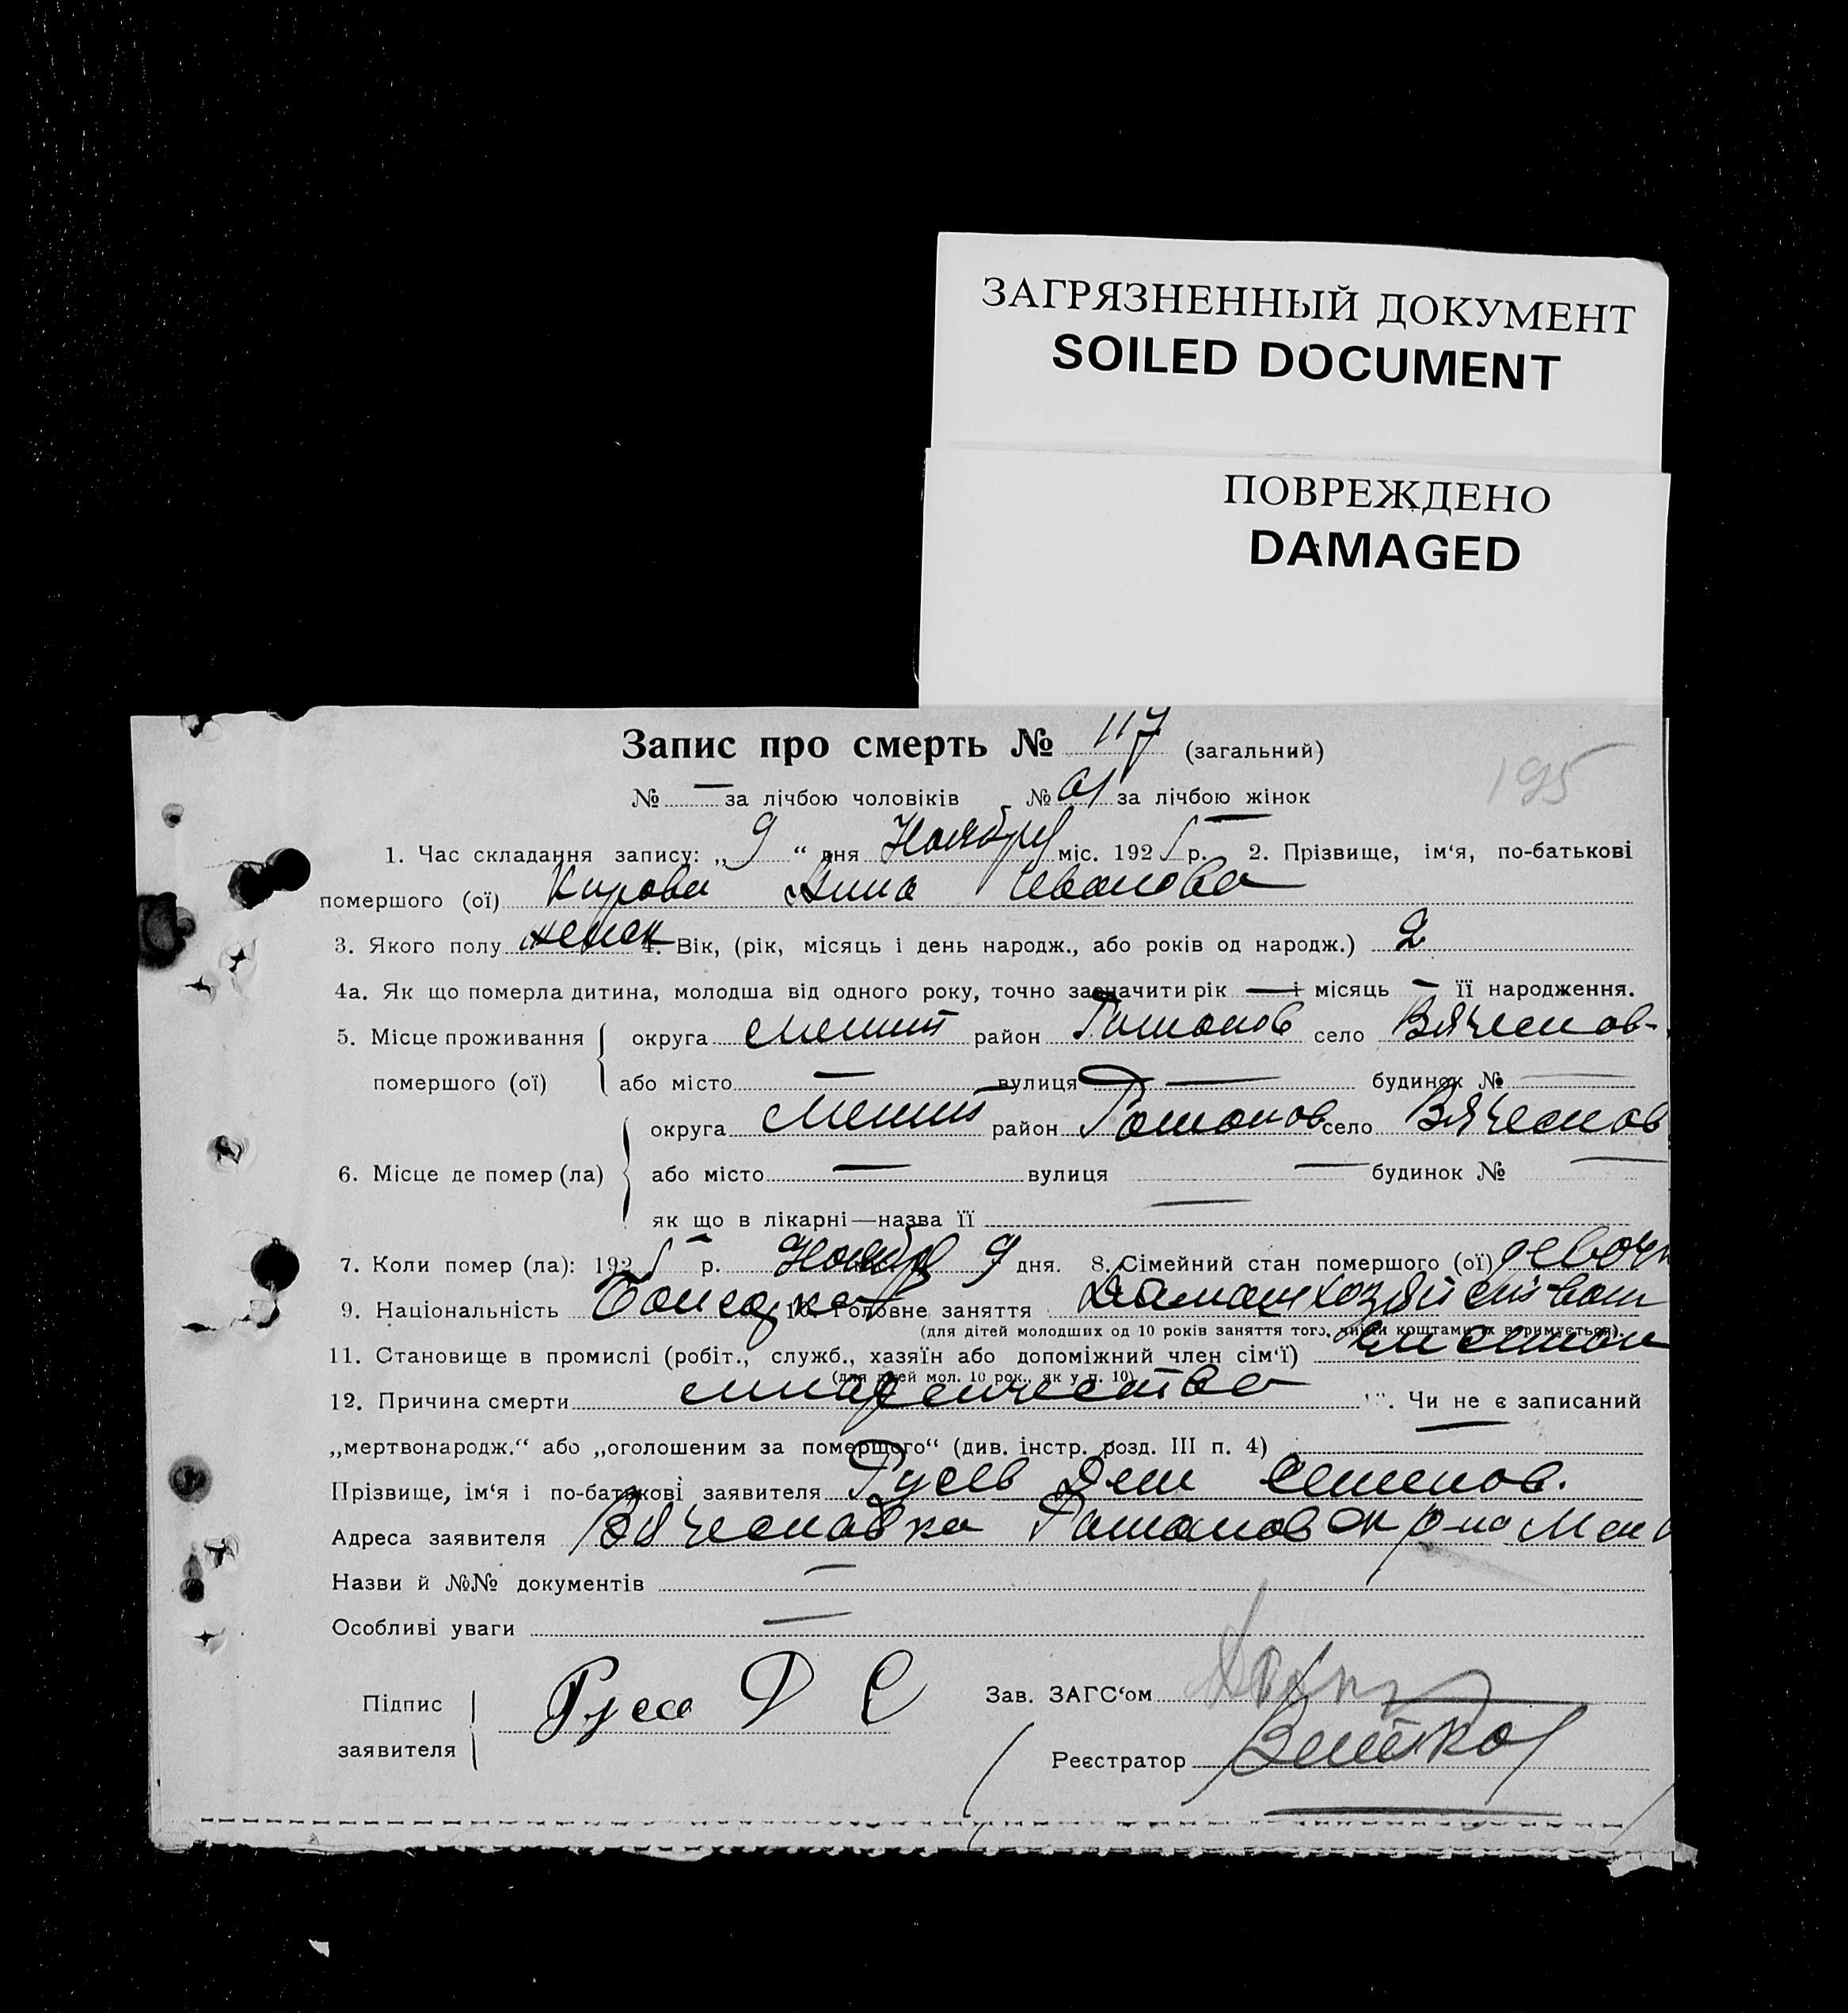 ЗАГРЯЗНЕННЫЙ ДОКУМЕНТ
SOILED DOCUMENT
ПОВРЕЖДЕНО
DAMAGED
Запис про смерть № 117 (загальний)
195
№ — за лічбою чоловіків № 61 за лічбою жінок
1. Час складання запису: „ 9 “ дня Ноября міс. 1925 р. 2. Прізвище, ім‘я, по-батькові
помершого (ої) Кирова Анна Иванова
3. Якого полу женск 4. Вік, (рік, місяць і день народж., або років од народж.) 2
4а. Як що померла дитина, молодша від одного року, точно зазначити рік — і місяць — її народження.
5. Місце проживання округа Мелит район Романов село Вячеслов-
помершого (ої) або місто — вулиця — будинок № —
округа Мелит район Романов село Вячеслов
6. Місце де помер (ла) або місто — вулиця — будинок № —
як що в лікарні—назва її —
7. Коли помер (ла): 1925 р. Ноября 9 дня. 8. Сімейний стан помершого (ої) девочк
9. Національність Болгарка 10. Головне заняття
(для дітей молодших од 10 років заняття того, чиїми коштами їх втримується).
11. Становище в промислі (робіт., служб., хазяїн або допоміжний член сім‘ї)
(для дітей мол. 10 рок., як у п. 10)
12. Причина смерти младенчество Чи не є записаний
„мертвонародж.“ або „оголошеним за помершого“ (див. інстр. розд. III п. 4) —
Прізвище, ім‘я і по-батькові заявителя Русев Дем Семенов.
Адреса заявителя Вячеславка Романовск р-на Мел
Назви й №№ документів —
Особливі уваги —
Підпис заявителя Русев Д С
Зав. ЗАГС‘ом
Реєстратор